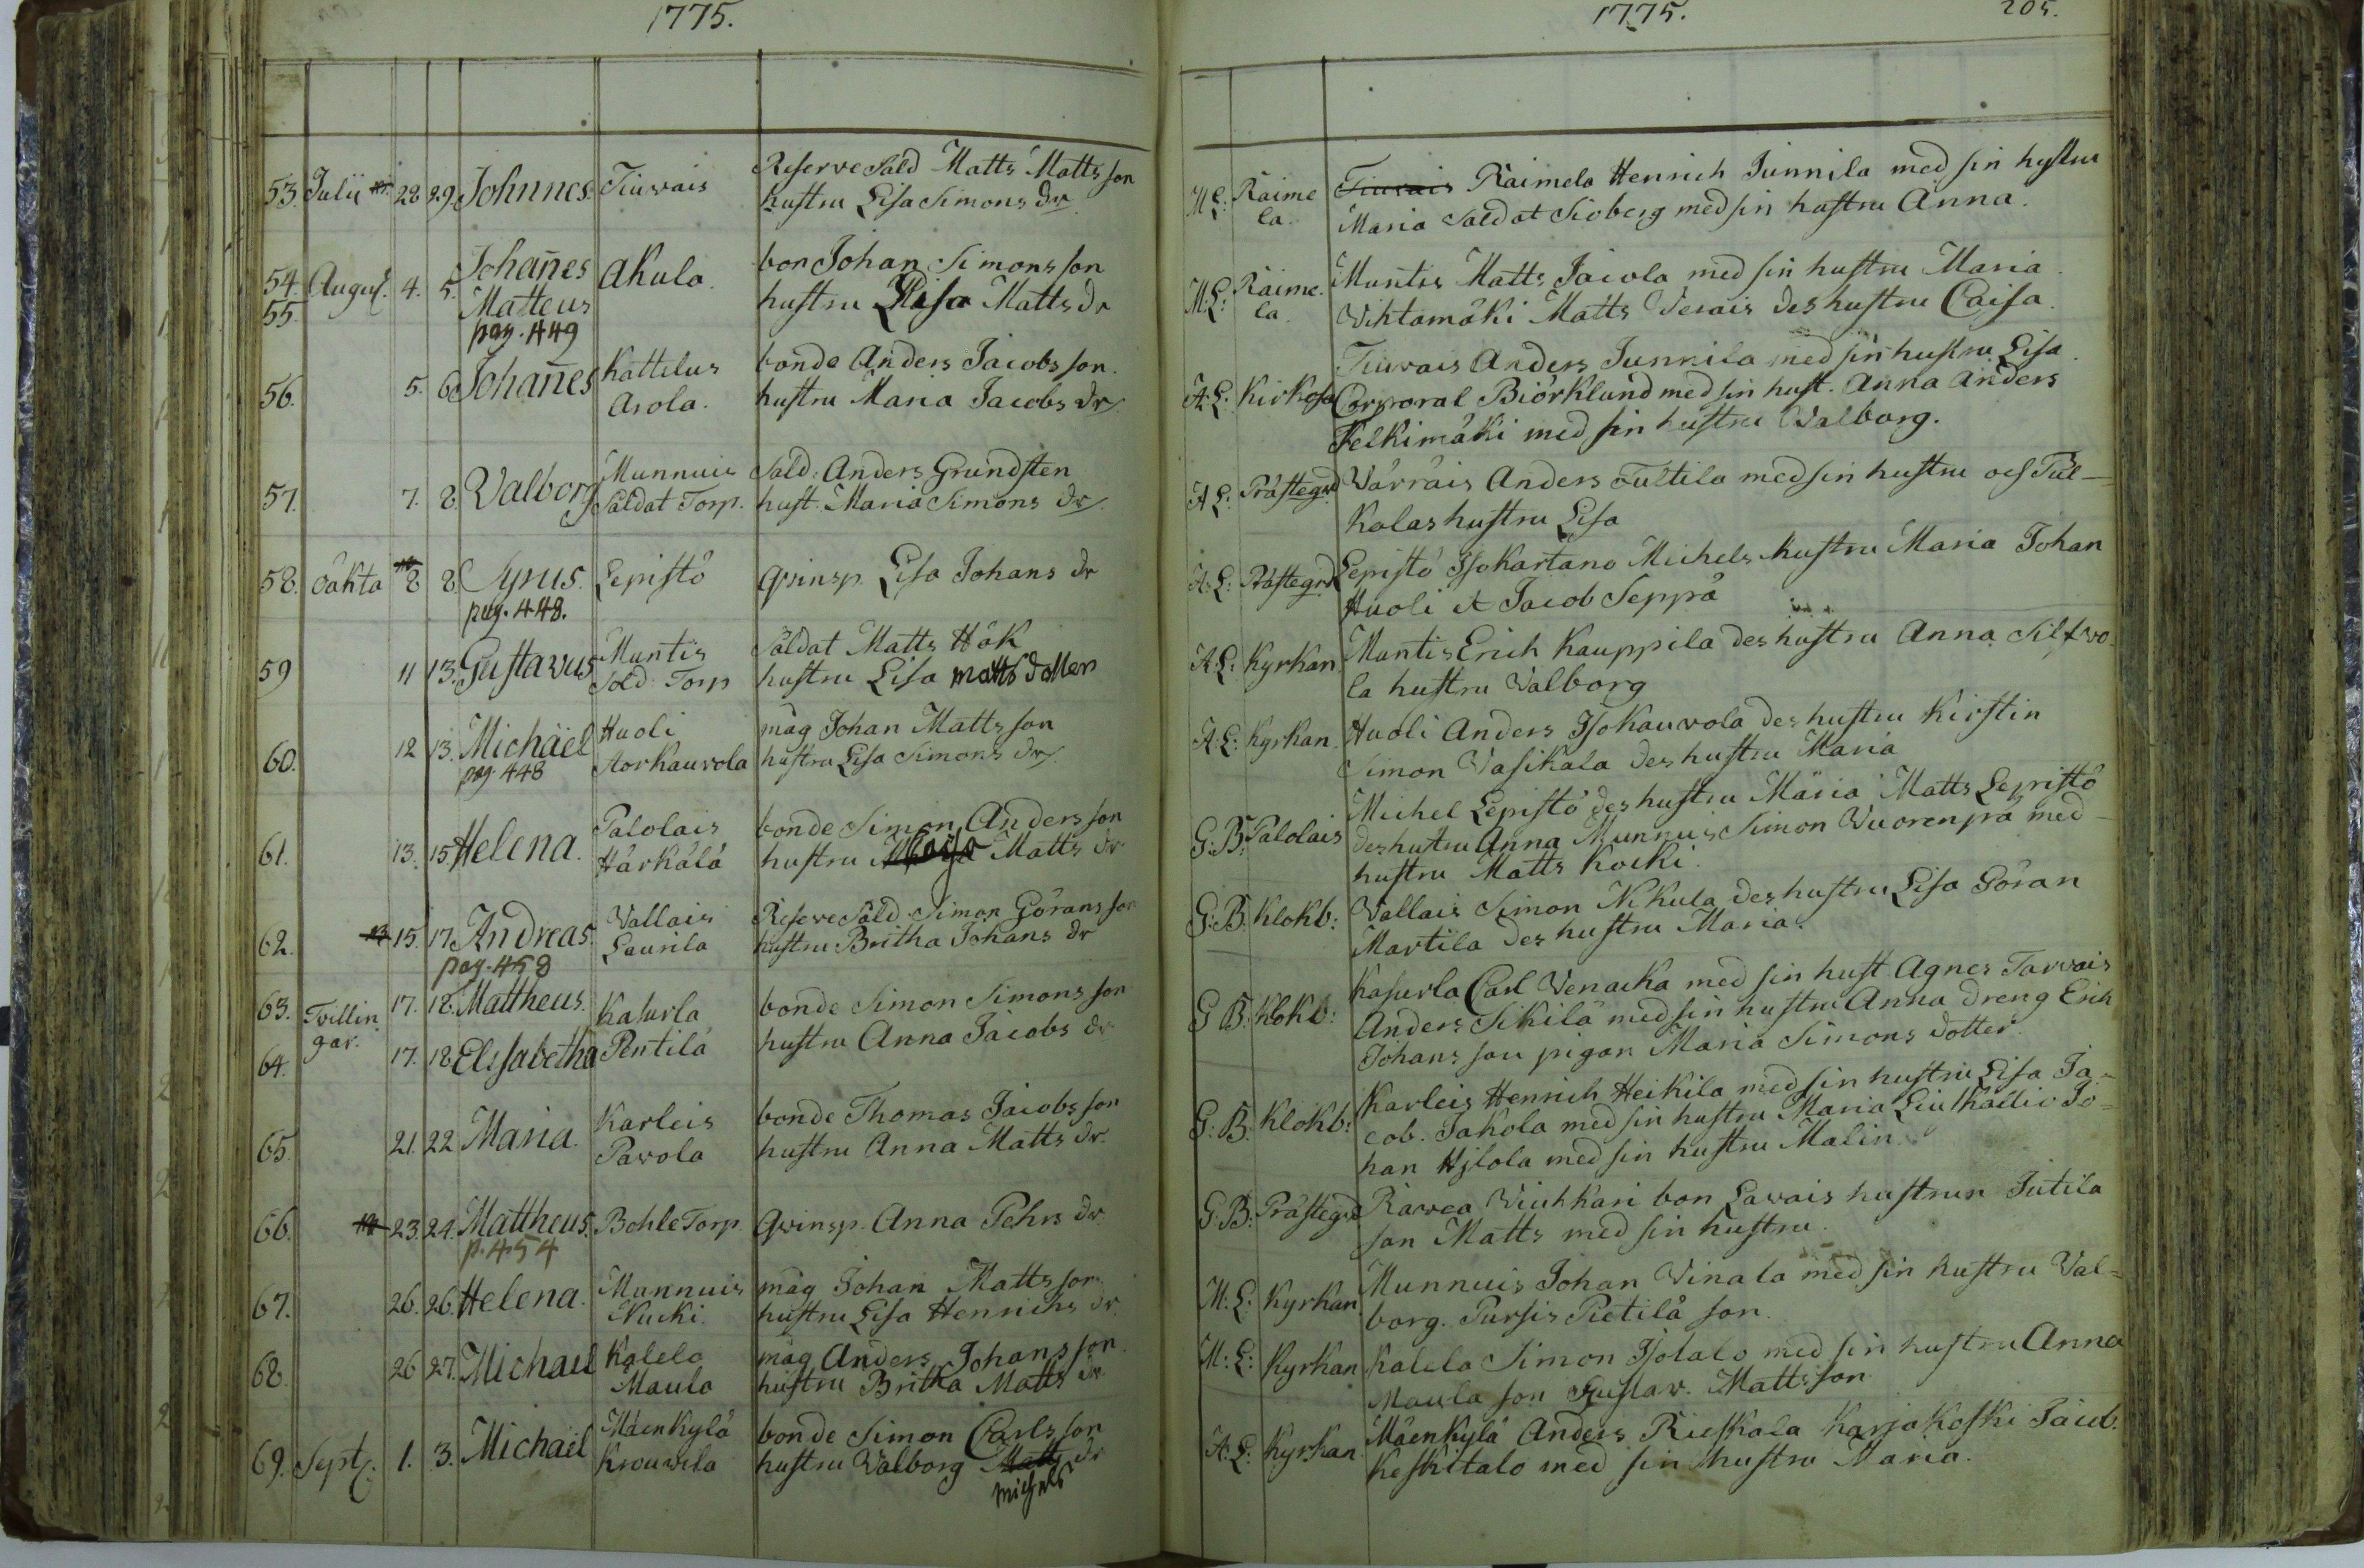 1775.
53. Julii 28 29. Johnnes. Tiuvais Reserve Sald Matts Matts son
hustru Lisa Simons dr
54. August. 4. 5. Johañes Akula. bon Johan Simons son
55. Matteus hustru Lisa Matts dr
pag. 449
56. 5. 6 Johañes Kattelus bonde Anders Jacobs son.
Asola. hustru Maria Jacobs dr
57. 7. 8. Valborg Munnuis Sald. Anders Grundsten
Saldat Torp. hust. Maria Simons dr
58. oäkta 8 8. Cyrus. Lepistö Qvinsp. Lisa Johans dr
pag. 448.
59 11 13. Gustavus Muntis Saldat Matts Hök
Sold Torp hustru Lisa Matts dotter
60. 12 13. Michäel Huoli måg Johan Matts son
pag 448 Aorkauvola hustru Lisa Simons dr
61. 13. 15 Helena. Palolais bonde Simon Anders son
Härkälä hustru Caisa Matts dr
62. 15. 17. Andreas. Vallais Reserve Sald Simon Görans son
pag. 458 Laurila hustru Britha Johans dr
63. Tvillin 17. 18. Mattheus. Kasurla bonde Simon Simons son
gar.
64. 17. 18 Elisabetha Pentilä hustru Anna Jacobs dr
65. 21. 22 Maria. Karleis bonde Thomas Jacobs son
Pavola hustru Anna Matts dr.
66. 23. 24. Mattheus. Bohle Torp. Qvinsp. Anna Pehrs dr
p. 454
67. 26. 26. Helena. Munnuis måg Johan Matts son
Nucki. hustru Lisa Henrichs dr
68. 26 27. Michael Kalela måg Anders Johans son
Maula hustru Britha Matts dr
69. Sept. 1. 3. Michäel Mäenkylä bonde Simon Carls son
Krouvila hustru Valborg Matts dr
Michels
1775. 205.
M. L: Raime Tiuvais Raimela Henrich Junnila med sin hustru
la Maria Saldat Sioberg med sin hustru Anna.
M: L: Raime. Muntis Matts Jacola med sin hustru Maria
la Vihtamäki Matts Verais des hustru Caisa.
Tiuvais Anders Junnila med sin hustru Lisa.
A: L: Kirkosa Corporal Biörklund med sin hust. Anna Anders
Felkimäki med sin hustru Valborg.
A L: Prästegrd Värräis Anders Tultila med sin hustru och Pul-
kalas hustru Lisa
A: L: Prästegrd Lepistö Isokartano Michels hustru Maria Johan
Huoli et Jacob Seppä
A: L: Kyrkan Muntis Erich Kauppila des hustru Anna
la hustru Valborg
A: L: Kyrkan. Huoli Anders Isokauvola des hustru Kirstin
Simon Vasikala des hustru Maria
Michel Lepistö des hustru Maria Matts Lepistö
G: B: Palolais des hustru Anna Munnuis Simon Vuorenpä med
hustru Matts Kocki.
G: B: Klokb: Vallais Simon Nikula des hustru Lisa Göran
Martila des hustru Maria.
Kasurla Carl Venacka med sin hust Agnes Tarvais
G B: Klokb: Anders Sikilä med sin hustru Anna dreng Erich
Johans son pigan Maria Simons dotter.
Karleis Henrich Heikila med sin hustru Lisa Ja-
G: B. Klokb: cob. Jakola med sin hustru Maria Liukallio Jo-
han Hjlola med sin hustru Malin.
G: B: Prästegrd Ravea bon Lavais hustrun Jutila
son Matts med sin hustru.
M: L: Kyrkan Munnuis Johan Vinala med sin hustru Val-
borg. Pursis Pietilä son.
M: L: Kyrkan Kalela Simon Isotalo med sin hustru Anna
Maula son Gustav Mattsson
A: L: Kyrkan. Mäenkylä Anders Rieskala Karjakoski Jacob.
Keskitalo med sin hustru Maria.